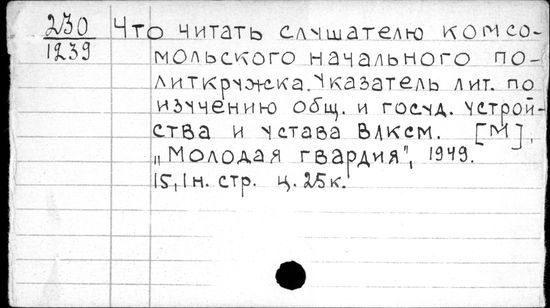 230 Что читать слушателю комсо-
1239 мольского начального по-
литкружка. Указатель лит. по
изучению общ. и госуд. устрой-
ства и устава ВЛКСМ. [М],
„Молодая гвардия", 1949.
15,1н. стр. ц. 25к.